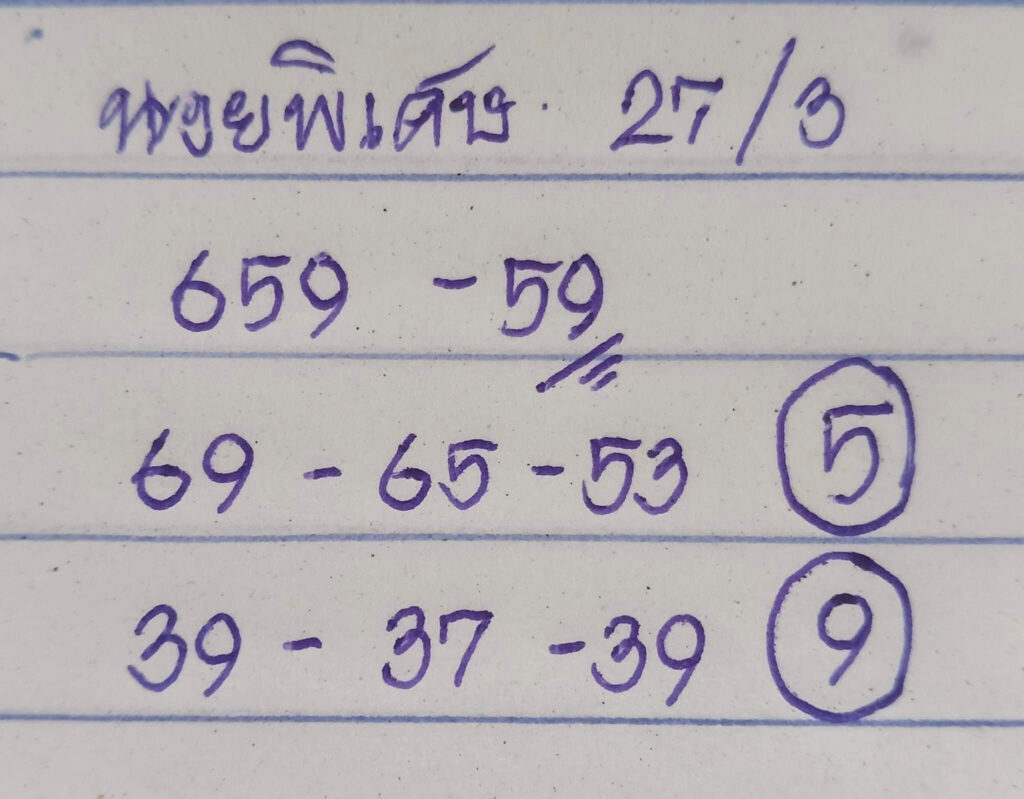 หวยพิเศษ 27/3
659 - 59
69 - 65 - 53 5
39 - 37 - 39 9